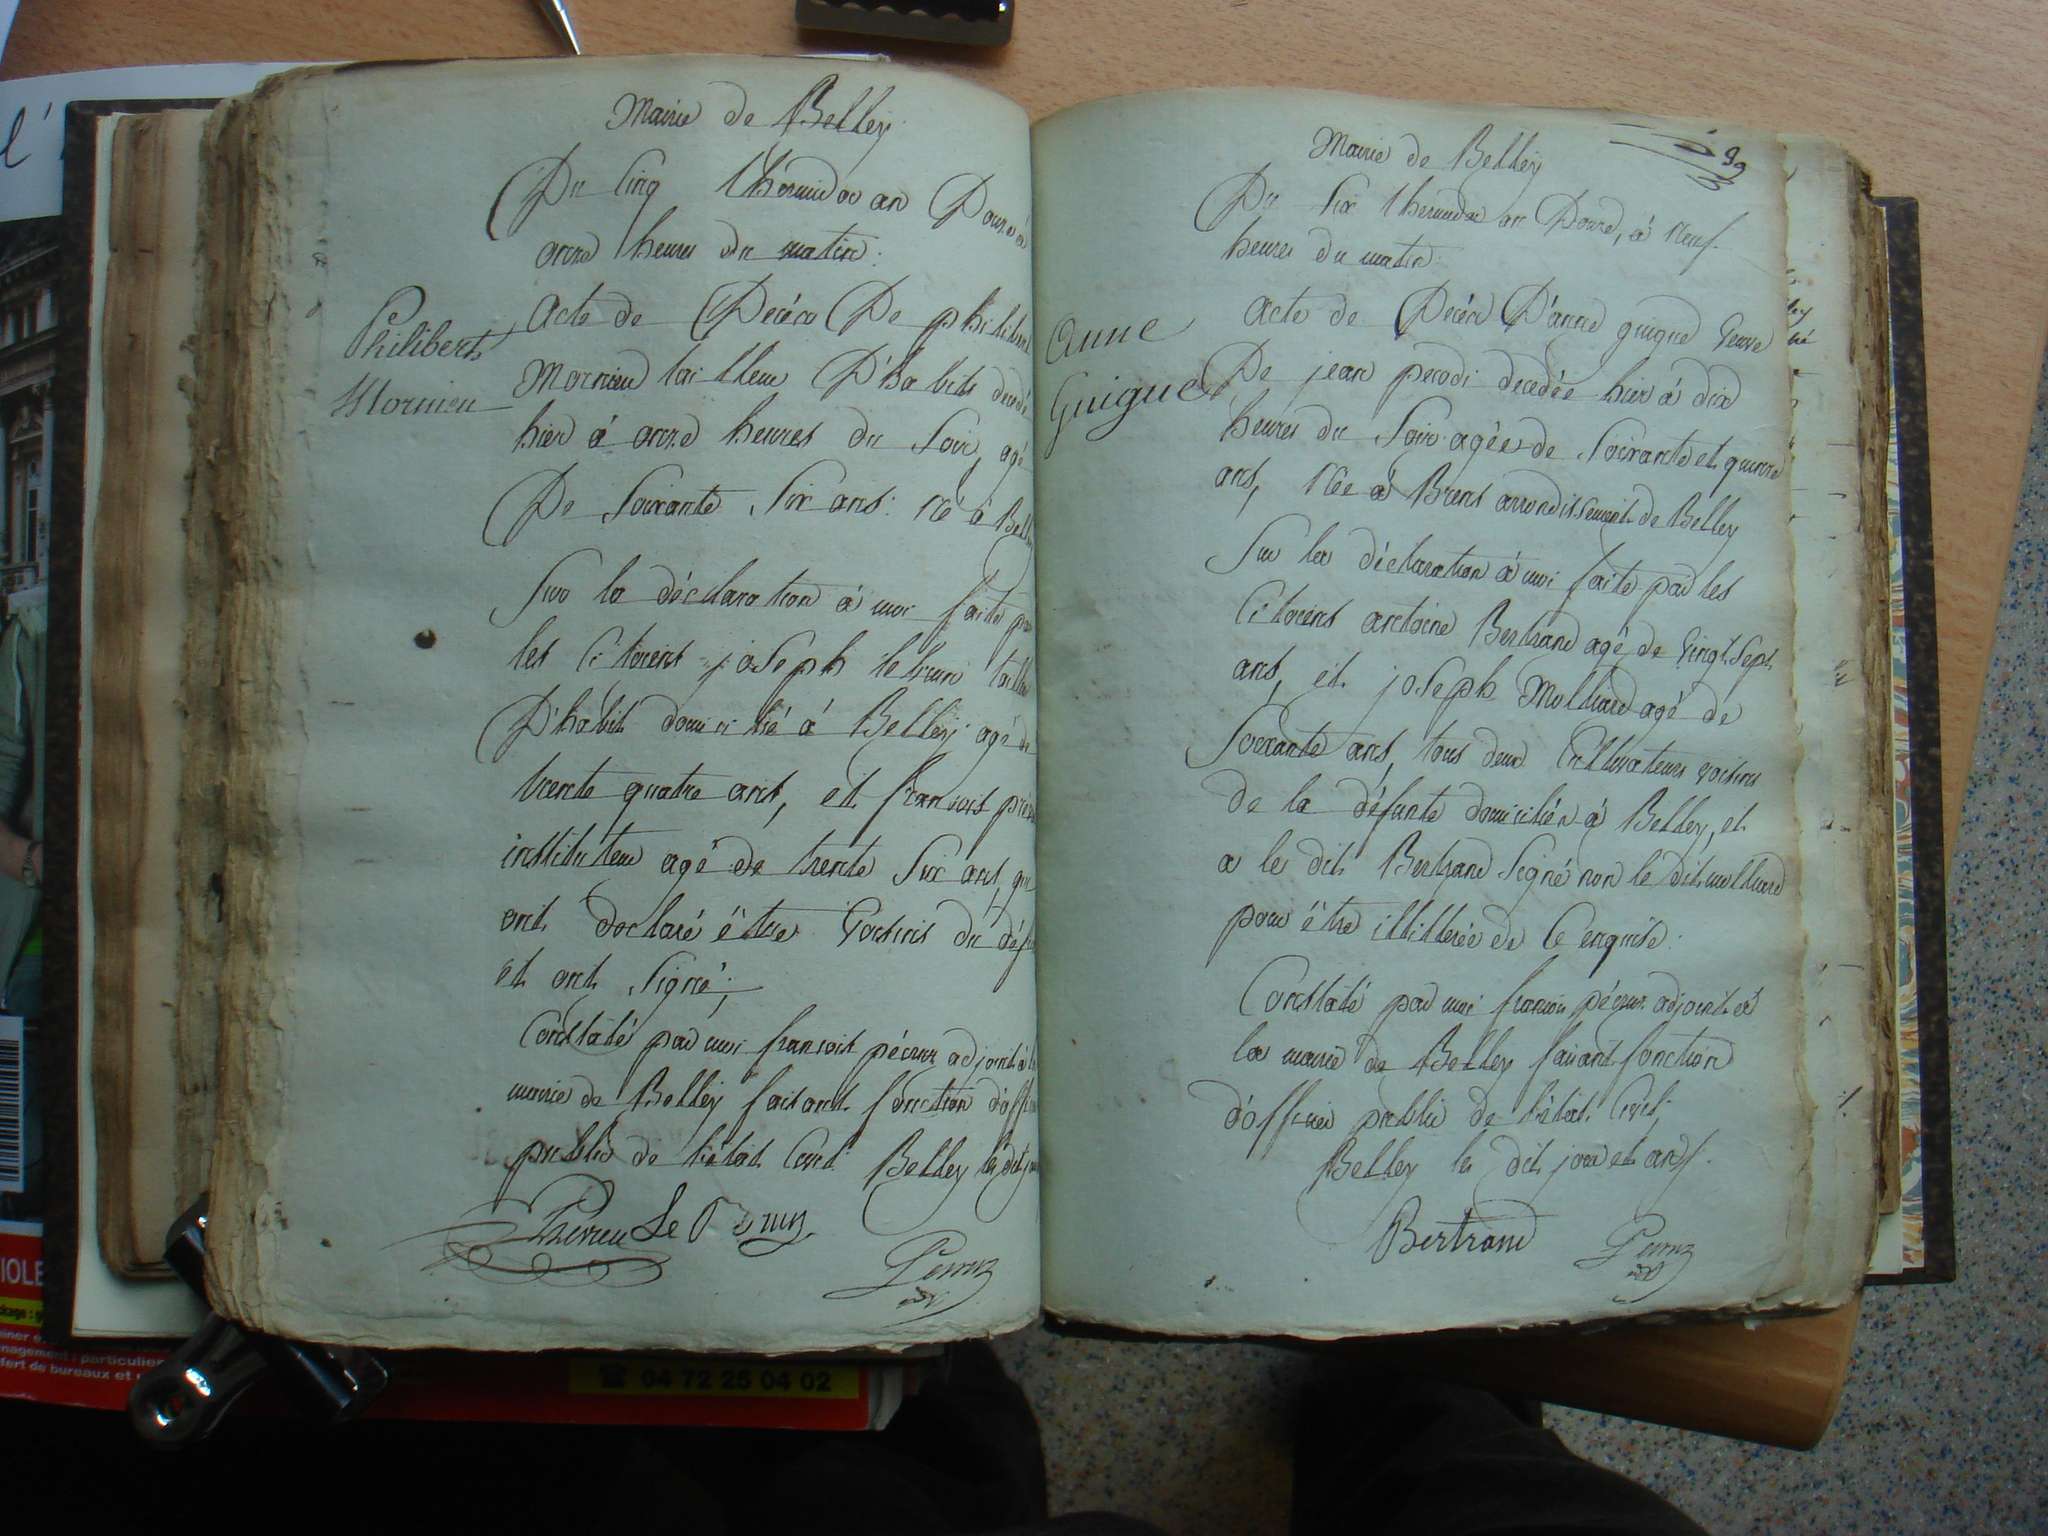 Mairie de Belley
Du Cinq thermidor an Douze à
onze heures du matin.
Philibert
Mornieu
Acte de Décés De philibert
Mornieu tailleur D'habits decedé
hier à onze heures du Soir, agé
De Soixante Six ans. né à Belley
Sur la déclaration à moi faite par
les Citoiens joseph lebrun tailleur
D'habit domicilié à Belley agé de
trente quatre ans, et francois
instituteur agé de trente Six ans, qui
ont declaré être Voisins du
et ont Signé;
Constaté par moi francois pécruz adjoint à la
mairie de Belley faisant fonction
public de l'état Civil. Belley le dit
Mairie de Belley
99
Du Six thermidor an Douze, à neuf
heures du matin.
Anne
Guigue
Acte de Décés D'anne guigue Veuve
De jean perodi decedée hier à dix
heures du Soir agée de Soixante et quinze
ans, née à Brens arrondissement de Belley
Sur la déclaration à moi faite par les
Citoiens antoine Bertrand agé de Vingt Sept
ans, et joseph Molliard agé de
Soixante ans, tous deux Cultivateurs voisins
de la défunte domiciliés à Belley, et
a le dit Bertrand Signé non le dit molliard
pour être illitterée de Ce enquise.
Constaté par moi francois pécruz adjoint à
la mairie de Belley faisant fonction
d'officier public de l'état Civil;
Belley les dit jour et an
Bertrand
VIOLE
04 72 25 04 02